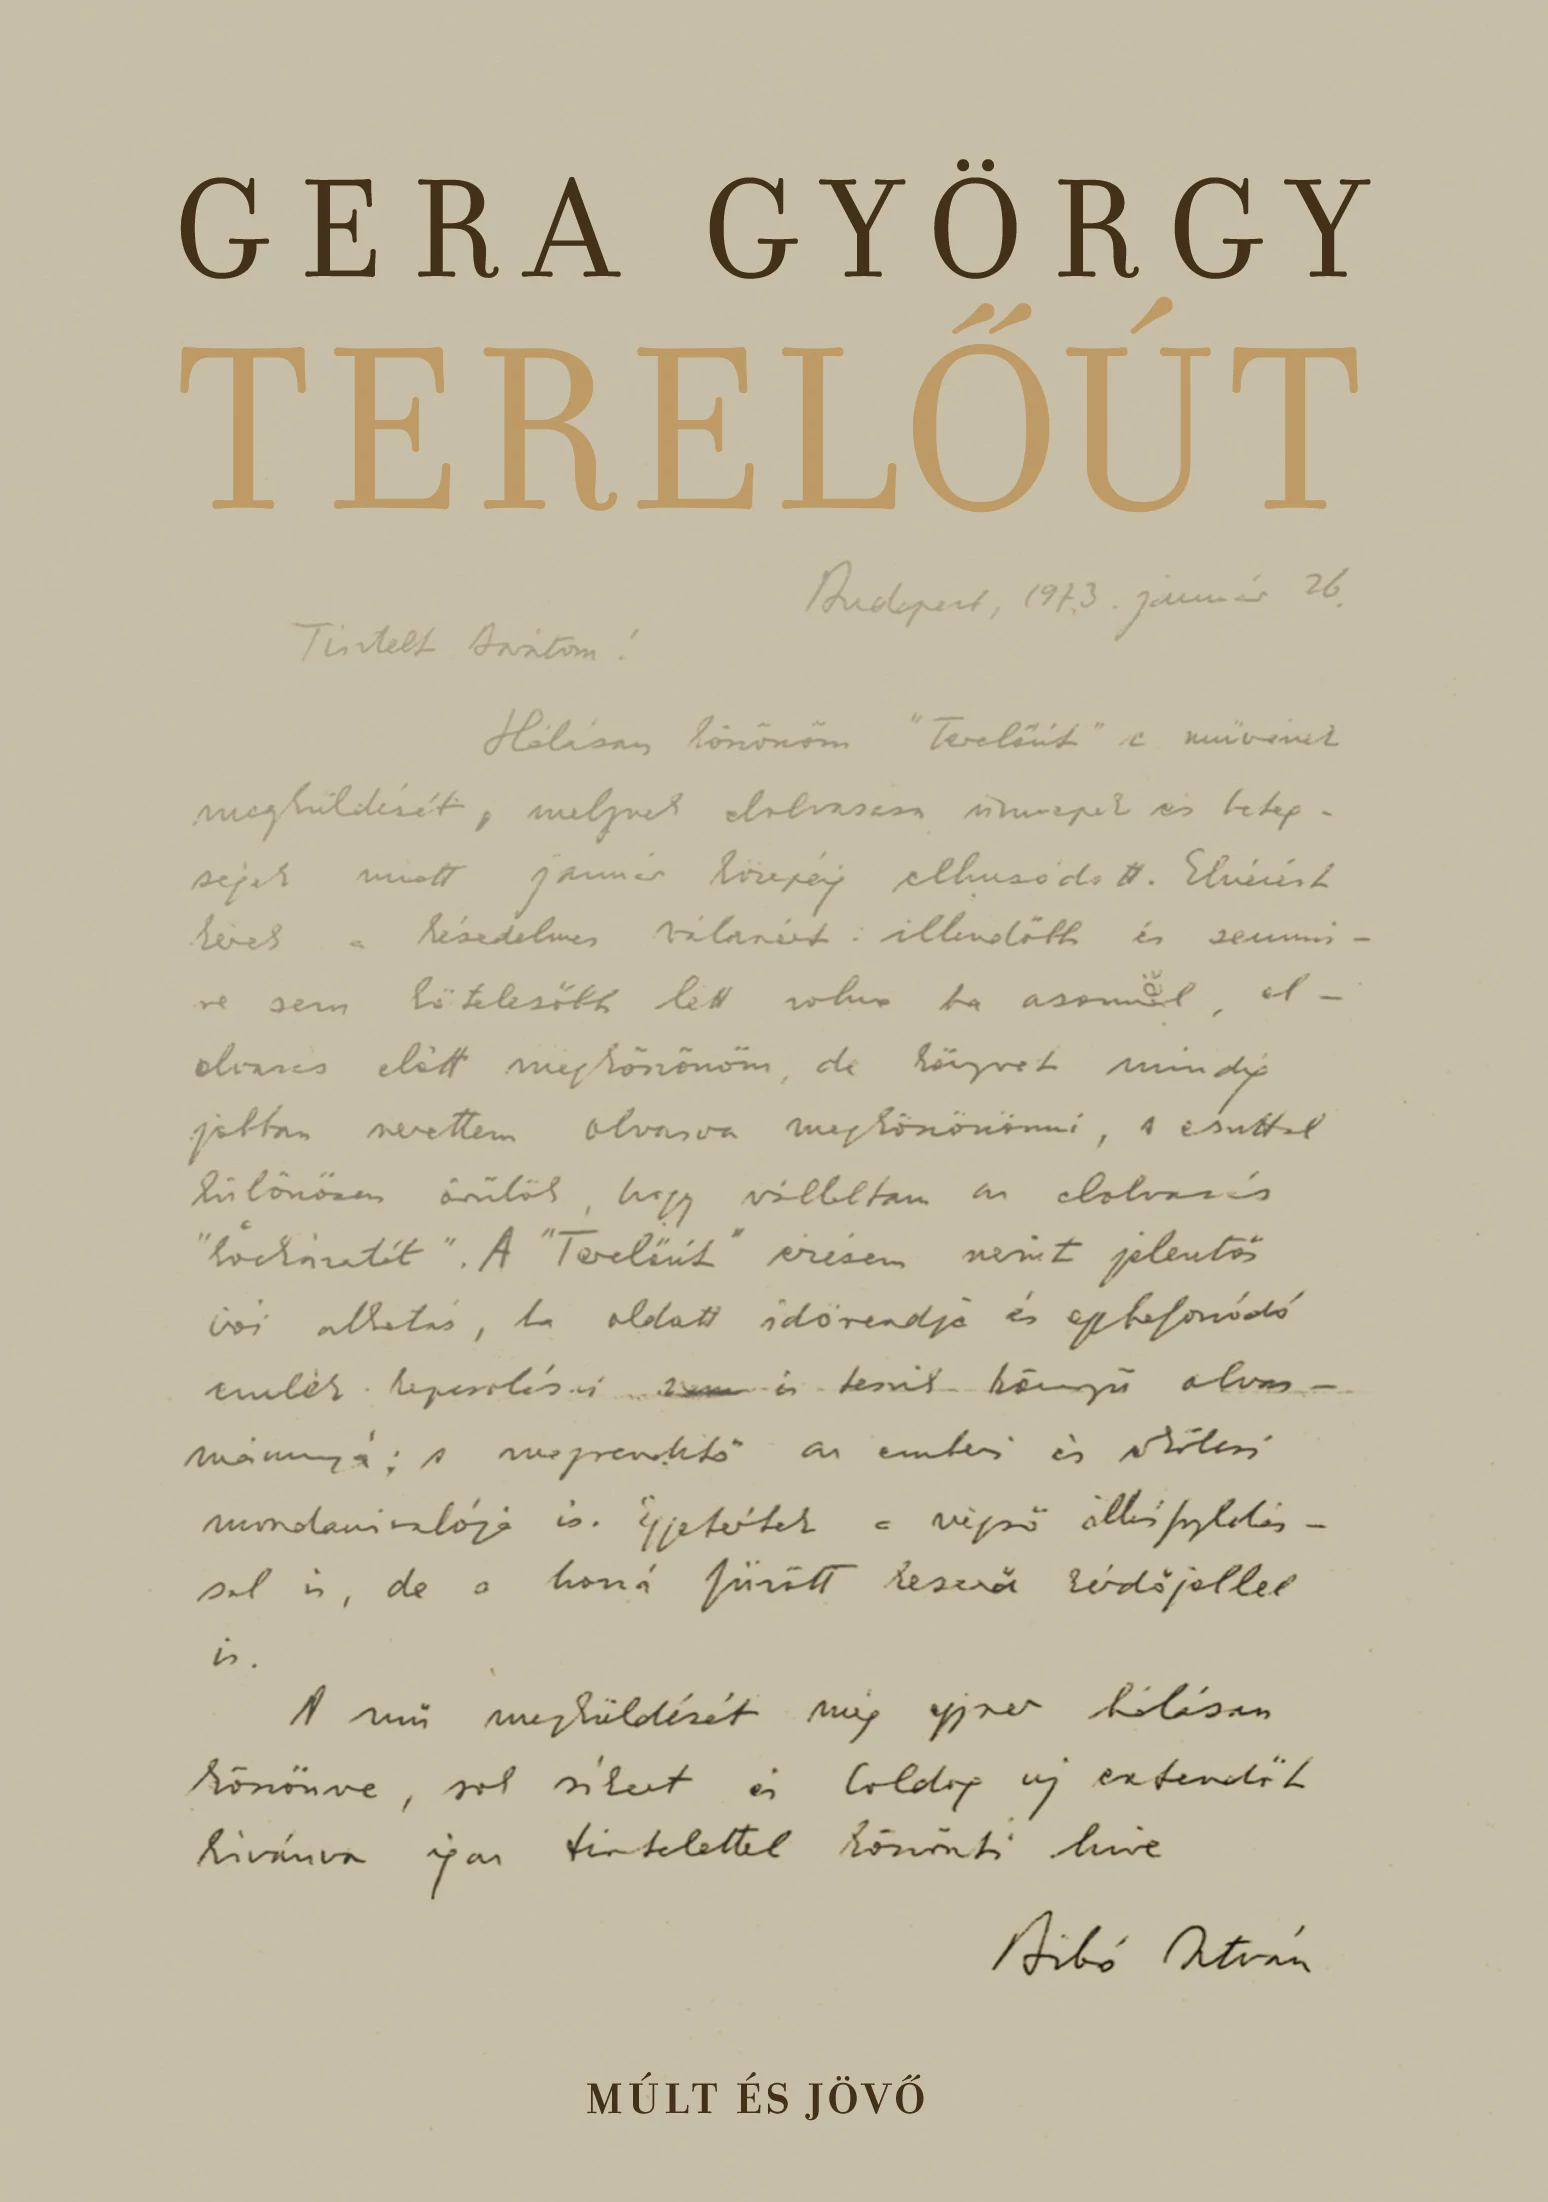 GERA GYÖRGY
TERELŐÚT
Budapest, 1973. január 26.
Tisztelt Barátom!
Hálásan köszönöm "Terelőút" c művének
megküldését, melynek elolvasása ünnepek és beteg-
ségek miatt január közepéig elhúzódott. Elnézést
kérek a késedelmes válaszért: illendőbb és semmi-
re sem kötelezőbb lett volna ha azonnal, el-
olvasás előtt megköszönöm, de könyvet mindig
jobban szerettem olvasva megköszönni, s ezúttal
különösen örülök, hogy vállaltam az elolvasás
"kockázatát". A "Terelőút" érzésem szerint jelentős
írói alkotás, ha oldott időrendje és egybefonódó
emlék kapcsolásai is teszik könnyű olvas-
mánnyá; s megrendítő az emberi és erkölcsi
mondanivalója is. Egyetértek a végső állásfoglalás-
sal is, de a hozzá fűzött keserű kérdőjellel
is.
A mű megküldését még egyszer hálásan
köszönve, sok sikert és boldog új esztendőt
kívánva igaz tisztelettel köszönti híve
Bibó István
MÚLT ÉS JÖVŐ